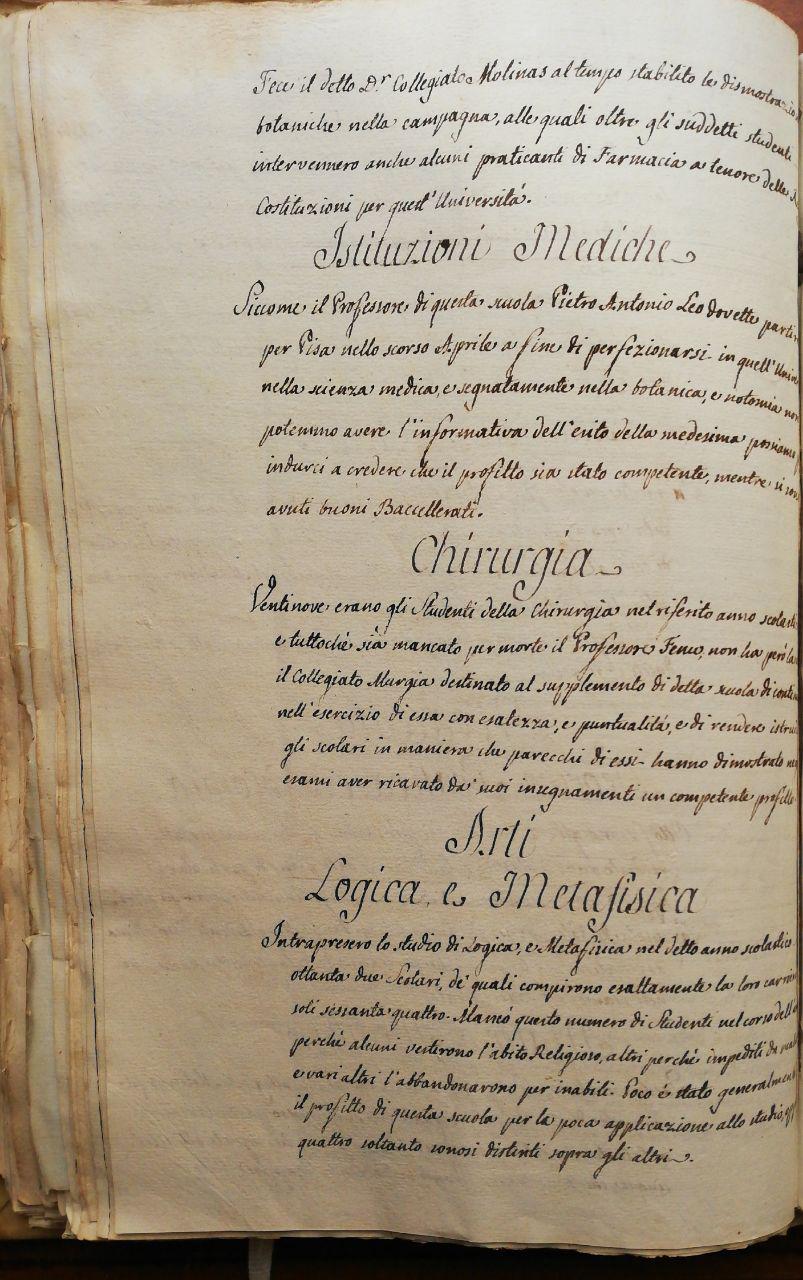 Fece il detto D.r Collegiato Molinas al tempo stabilito le dismostrazio
botaniche nella campagna, alle quali oltre gli suddetti studenti
intervennero anche alcuni praticanti di Farmacia a tenore delle
Costituzioni per quest'Università.
Istituzioni Mediche
Siccome il Professore di questa scuola Pietro Antonio Leo dovette parti
per Pisa nello scorso Aprile a fine di perfezionarsi in quell'Univ
nella scienza medica, e segnatamente nella botanica, e notomia non
potemmo avere l'informativa dell'esito della medesima possiamo
indurci a credere che il profitto sia stato competente, mentre si son
avuti buoni Baccellerati.
Chirurgia
Ventinove erano gli Studenti della Chirurgia nel riferito anno scolasti
e tuttoché sia mancato per morte il Professore Fenu, non ha però la
il Collegiato Murgia destinato al supplemento di detta scuola di conti
nell'esercizio di essa con esatezza, e puntualità, e di rendere istrui
gli scolari in maniera che parecchi di essi hanno dimostrato ne
esami aver ricavato da' suoi insegnamenti un competente profitto
Arti
Logica, e Metafisica
Intrapresero lo studio di Logica, e Metafisica nel detto anno scolastico
ottanta due Scolari, de' quali compirono esattamente la loro carri
soli sessanta quattro. Mancò questo numero di Studenti nel corso dell'
perché alcuni vestirono l'abito Religioso, altri perché impediti da
e vari altri l'abbandonarono per inabili. Poco è stato generalment
il profitto di questa scuola per la poca applicazione allo studio,
quattro soltanto sonosi distinti sopra gli altri.